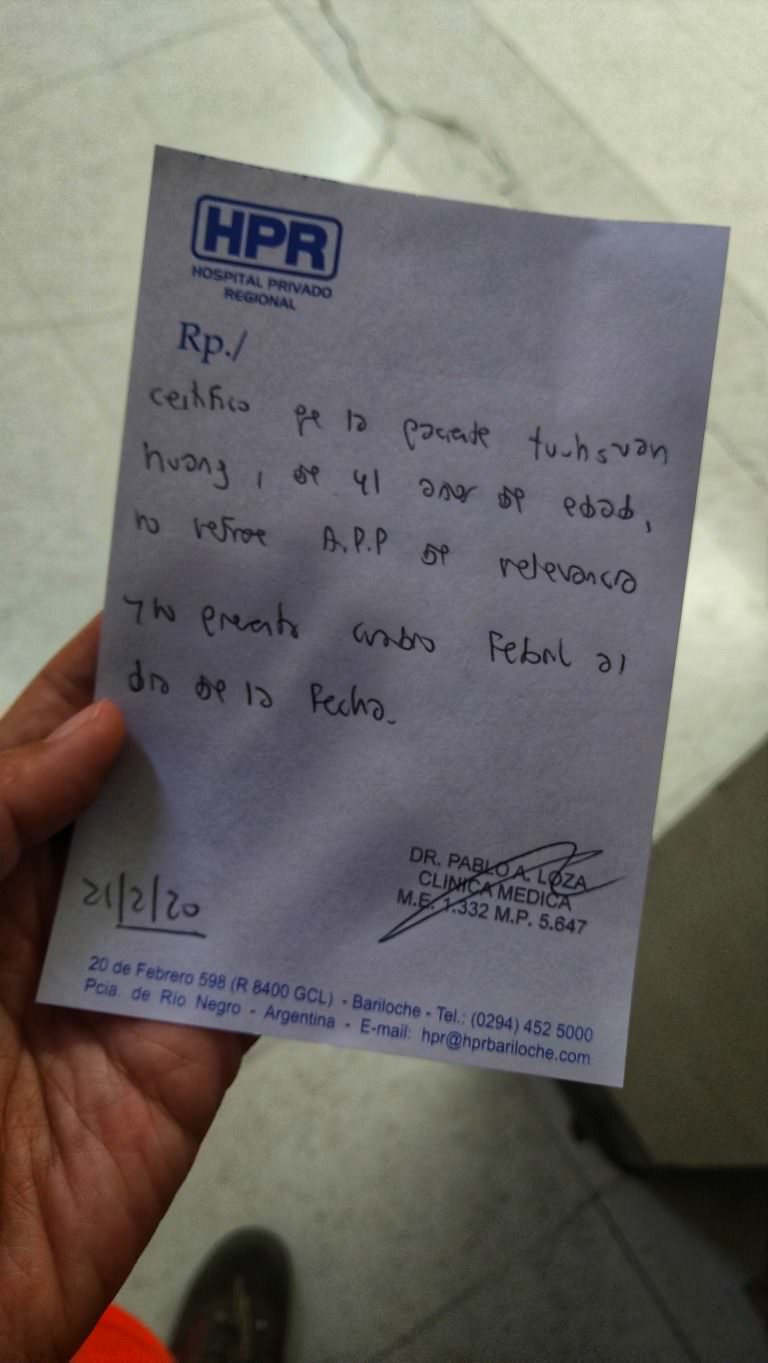 HPR
HOSPITAL PRIVADO
REGIONAL
Rp./
certifico qe la paciente
huang, de 41 años de edad,
no refiere A.P.P de relevancia
y no presenta cuadro Febril al
dia de la Fecha.
21/2/20
DR. PABLO A. LOZA
CLINICA MEDICA
M.E. 1.332 M.P. 5.647
20 de Febrero 598 (R 8400 GCL) - Bariloche - Tel.: (0294) 452 5000
Pcia. de Río Negro - Argentina - E-mail: hpr@hprbariloche.com